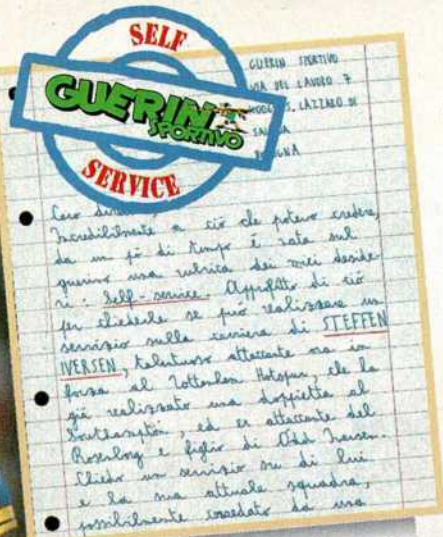 SELF
GUERIN
SPORTIVO
SERVICE
GUERIN SPORTIVO
VIA DEL LAVORO 7
S. LAZZARO DI
Caro
Incredibilmente a ciò che potevo credere,
da un pò di tempo è nata sul
guerino una rubrica dei miei deside-
ri: Self-service. Approfitto di ciò
per chiederle se può realizzare un
servizio sulla carriera di STEFFEN
IVERSEN, talentuoso attaccante ora in
forza al Tottenham Hotspur, che ha
già realizzato una doppietta al
Southampton, ed ex attaccante del
Rosenborg e figlio di Odd Iversen.
Chiedo un servizio su di lui
e la sua attuale squadra,
possibilmente corredato da una